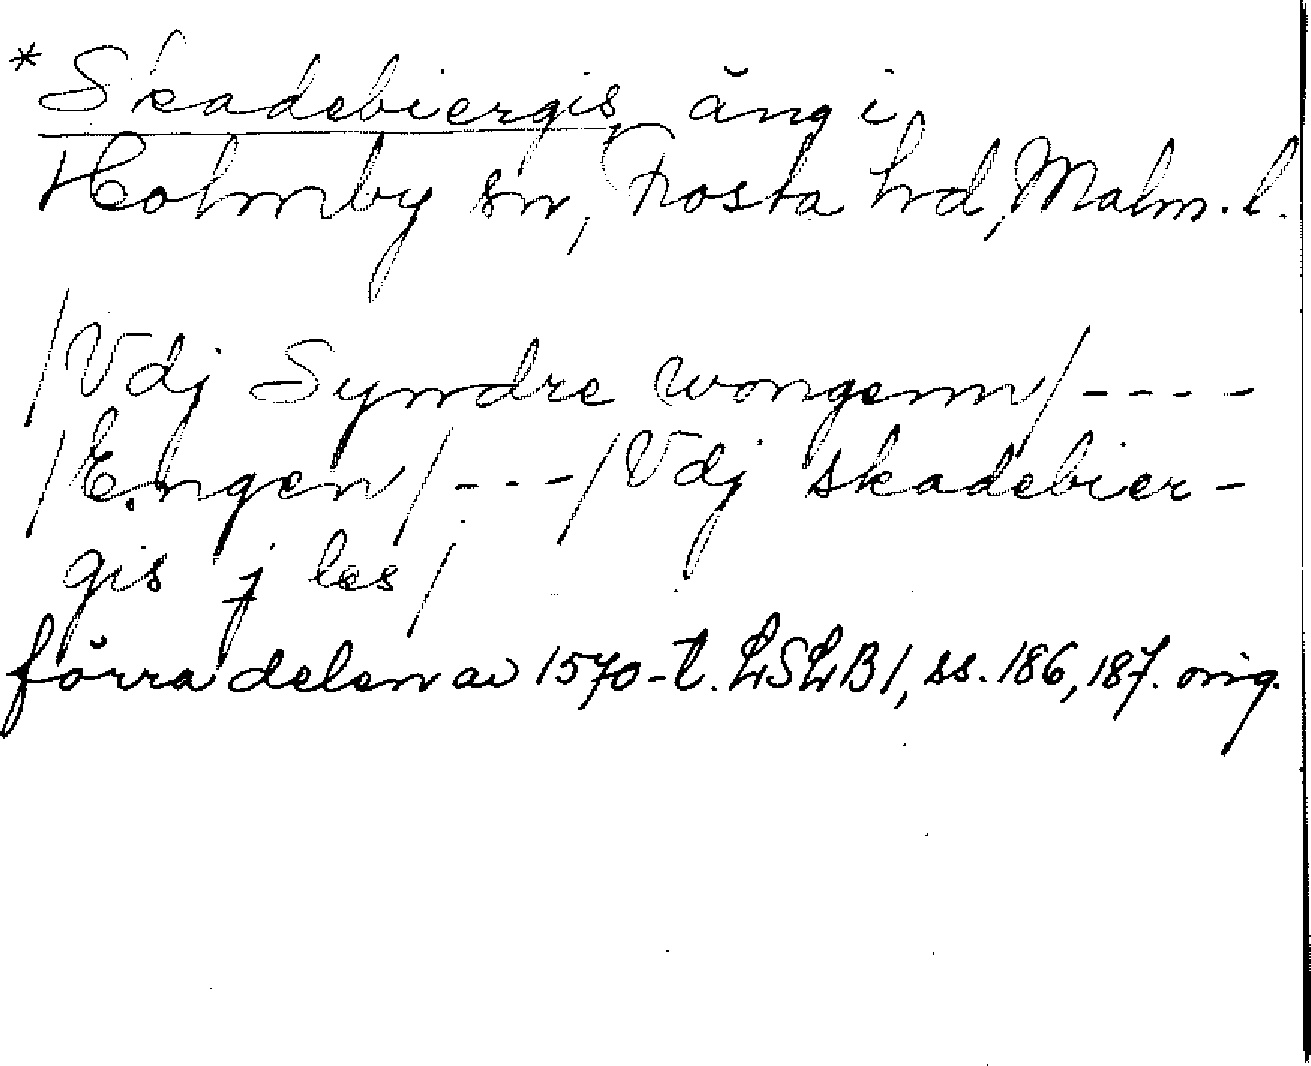 *Skadebiergis, äng i
Holmby sn, Frosta hd, Malm. l.
/Vdj Syndre wongenn/ ----
/Engen/ --- /Vdj skadebier-
gis j les/
förra delen av 1570-t. LSLB1, ss. 186, 187. orig.